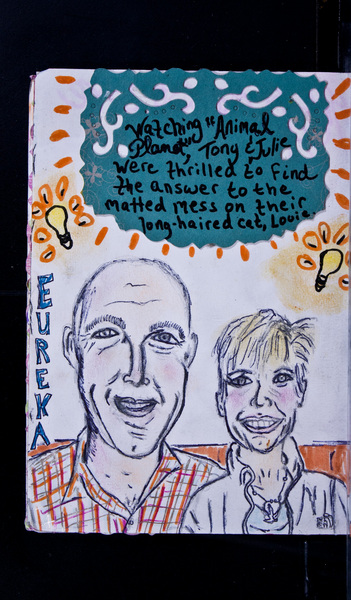 Watching "Animal
Planet", Tony & Julie
were thrilled to find
the answer to the
matted mess on their
long-haired cat, Louie.
EUREKA